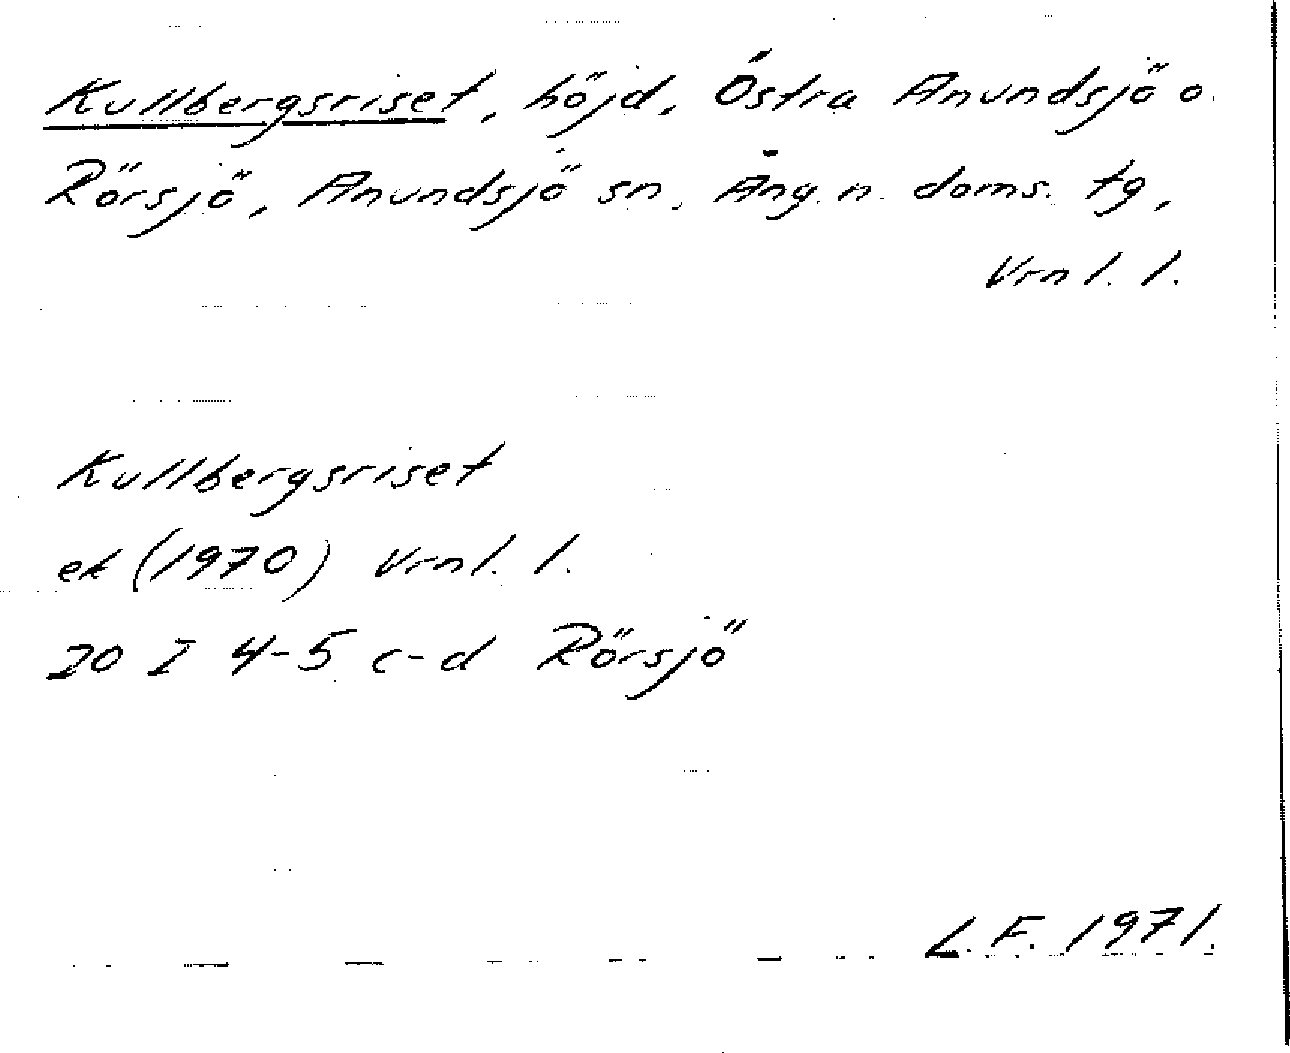 Kullbergsriset, höjd, Östra Anundsjö o.
Rörsjö, Anundsjö sn, Ång. n. doms. tg,
Vrnl. l.
Kullbergsriset
ek (1970) Vrnl. l.
20 I 4-5 c-d Rörsjö
L.F. 1971.